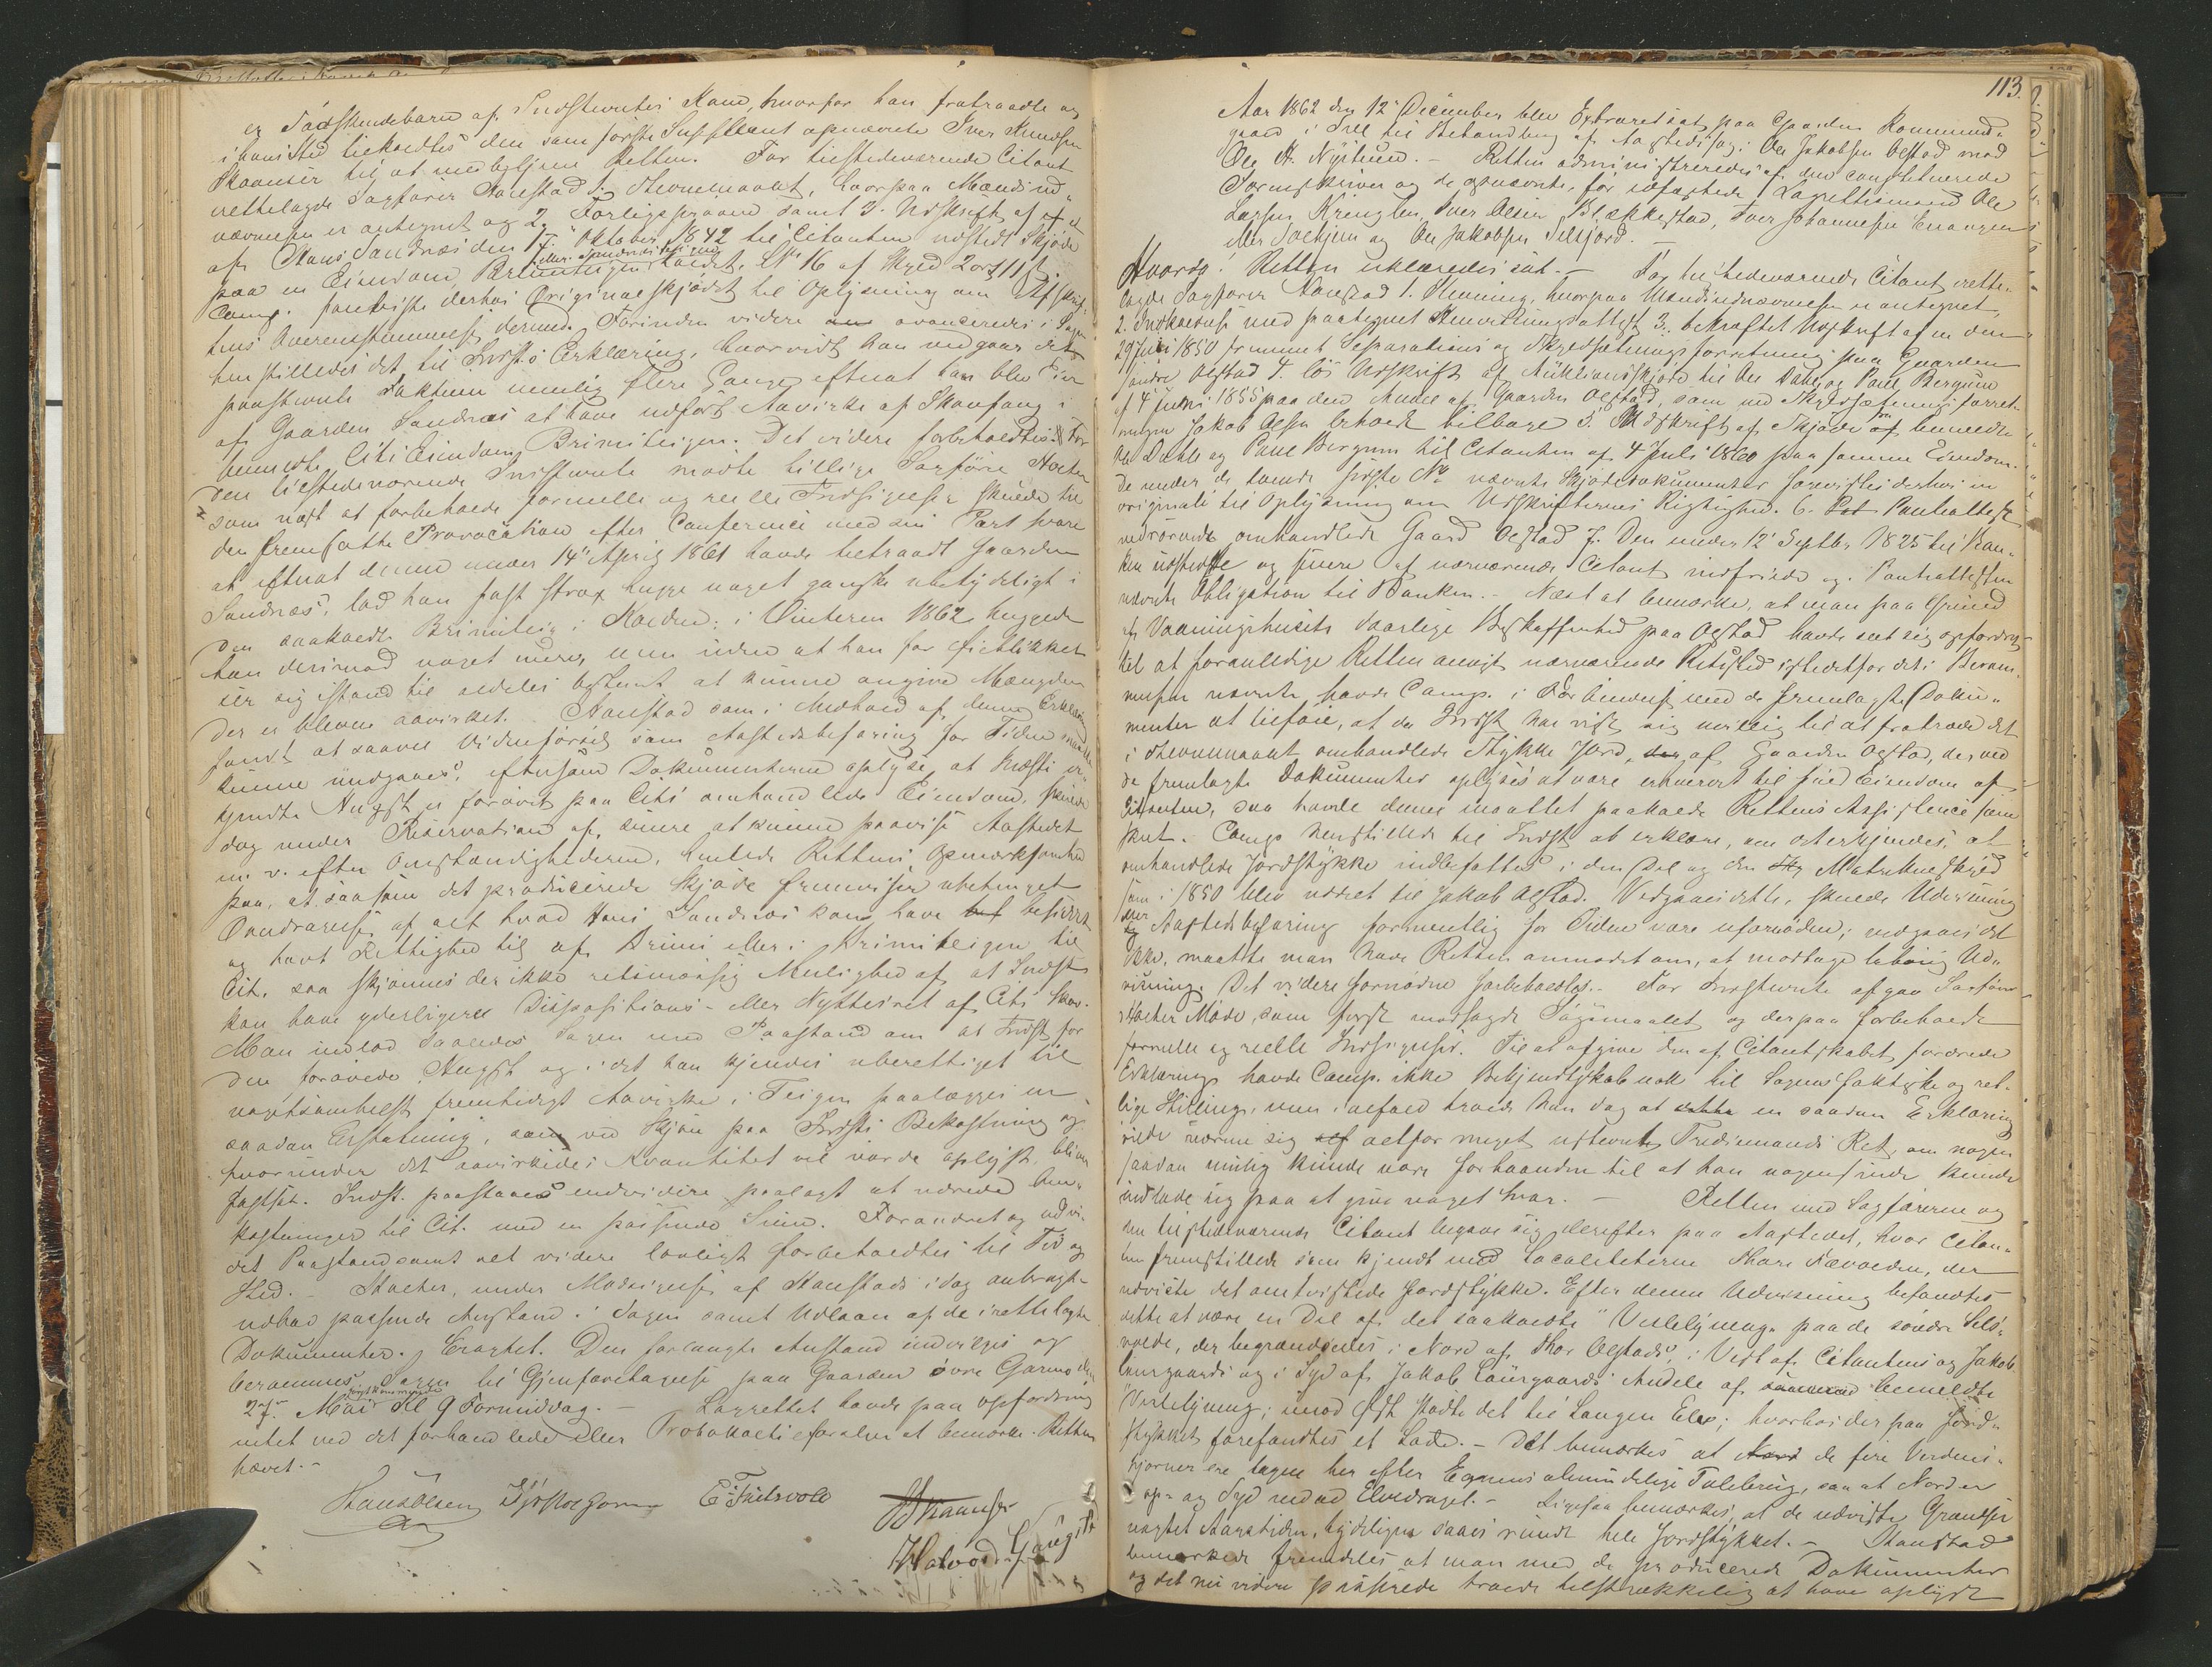 er Sødskendebarn af Indstevntes Kone, hvorfor han fratraadte og
i hans Sted tiltraadtes den som første Suppleant opnævnte Iver Knudsen
til at medbetjene Retten. For tilstedeværende Citant
irettelagde Sagfører Aanstad 1. Stevnemaalet, hvorpaa Mænds ud-
nævnelsen er antegnet og 2. Forligsprøven samt 3. Udskrift af et
af Hans Sandnæs den 17. Oktober 1842 til Citanten udstedt Skjøde
paa en Eiendom, Brimiteigen kaldet, No 16 af Skyld 2 ort 11 ß.
Comp. foreviste derhos Originalskjødet til Oplysning om Afskrif-
tens Overensstemmelse dermed. Forinden videre avanceredes i Sagen
henstilledes det til Indsts Erklæring, hvorvidt han vedgaar det
paastevnte Faktum nemlig flere Gange efterat han blev Eier
af Gaarden Sandnæs at have udført Aavirke af Skovfang i
bemeldte Cits Eiendom Brimiteigen. Det videre forbeholdtes. For
den tilstedeværende Indstevnte mødte tillige Sagfører Stocker
som næst at forbeholde formelle og reelle Indsigelser skulde til
den fremsatte Provocation efter Conference med sin Part svare
at efterat denne under 14de April 1861 havde tiltraadt Gaarden
Sandnæs, lod han fast strax hugge noget ganske ubetydeligt i
den saakaldte Brimiteig i Kolden; i Vinteren 1862 huggede
han derimod noget mere, men uden at han for Øieblikket
ser sig istand til aldeles bestemt at kunne angive Mængden
der er bleven aavirket. Aanstad som i Medhold af denne Erklæring
fandt at saavel Vidneførsel som Aastedsbefaring for Tiden maatte
kunne undgaaes, eftersom Dokumenterne oplyse, at Indsts er-
kjendte Hugst er forøvet paa Cits omhandlede Eiendom, skulde
dog under Reservation af, senere at kunne paavise Aastedet
m. v. efter Omstændighederne, henlede Rettens Opmærksomhed
paa, at saasom det producerede Skjøde fremviser ubetinget
Overdragelse af alt hvad Hans Sandnæs kan have besiddet
og havt Rettighed til af Brimi eller i Brimiteigen til
Cit. saa skjønnes der ikke retsmæssig Mulighed af, at Indst.
kan have yderligere Dispositions- eller Nyttesret af Cits Skov.
Man indlod saaledes Sagen med Paastand om at Indst. for
den forøvede Hugst og idet han kjendes uberettiget til
nogetsomhelst fremtidigt Aavirke i Teigen paalægges en
saadan Erstatning, som ved Skjøn paa Indsts Bekostning og
hvorunder det aavirkedes Kvantitet vil vorde oplyst, bliver
fastsat. Indst. paastaaes endvidere paalagt at udrede Om-
kostninger til Cit. med en passende Sum. Forandret og udvi-
det Paastand samt alt videre lovligt forbeholdtes til Tid og
Sted. — Stocker, under Modsigelse af Aanstads i dag anbragte
udbad passende Anstand i Sagen samt Udlaan af de irettelagte
Dokumenter. Eragtet. Den forlangte Anstand indvilges og
berammes Sagen til Gjenforetagelse paa Gaarden øvre Garmo den
27. Mai førstkommende Kl 9 Formiddag. — Lagrettet havde paa Opfordring
intet ved det forhandlede eller Protokolleforelsen at bemærke. Retten
hævet. —
Hans Olsen
113.
Aar 1862 den 12te December blev Extraret sat paa Gaarden Kommund-
gaard i Sell til Behandling af Aastedssag: Ole Jakobsen Olstad mod
Ole H. Nystuen. — Retten administreredes af den constituerede
Sorenskriver og de opnævnte, før edfæstede Lagrettesmænd Ole
Larsen Kringlen, Iver Olsen Blækkestad, Iver Johannesen Enangen
eller Solhjem og Ole Jakobsen Selsjord. —
Hvorda! Retten erklæredes sat. — For tilstedeværende Citant irette-
lagde Sagfører Aanstad 1. Stevning, hvorpaa Mændsudnævnelsen er antegnet,
2. Indkaldelse med paategnet Henvisningsattest 3. bekræftet Udskrift af en den
29 Juli 1850 fremmet Separations og Skyldsætningsforretning paa Gaarden
søndre Olstad 4. løs Udskrift af Auktionsskjøde til Ole Dahle og Paul Bergum
af 4 Juni 1855 paa den Andel af Gaarden Olstad, som ved Skyldsætningsforret-
ningen Jakob Olsen beholdt tilbage 5. Udskrift af Skjøde fra bemeldte
Ole Dahle og Paul Bergum til Citanten af 4 Juli 1860 paa samme Eiendom.
De under de tvende sidste No nævnte Skjødedokumenter forevistes derhos in
originali til Oplysning om Udskrifternes Rigtighed. 6. Pantattest
vedrørende omhandlede Gaard Olstad 7. Den under 12te Septbr. 1825 til Ban-
ken udstedte og senere af nærværende Citant indfriede og i Pantattesten
nævnte Obligation til Banken. — Næst at bemærke, at man paa Grund
af Vaaningshusets daarlige Beskaffenhed paa Olstad havde set sig opfordret
til at foranledige Retten anvist nærværende Retssted istedetfor det i Beram-
melsen nævnte, havde Comp. i Forbindelse med de fremlagte Doku-
menter at tilføie, at da Indst. har vist sig uvillig til at fratræde det
i Stevnemaalet omhandlede Stykke Jord, af Gaarden Olstad, der ved
de fremlagte Dokumenter oplyses at være erhvervet til fuld Eiendom af
Citanten, saa havde denne maattet paakalde Rettens Assistence som
skeet. Comp. henstillede til Indst. at erklære, om det erkjendes, at
omhandlede Jordstykke indbefattes i den Del og den Matrikulskyld
som i 1850 blev udlagt til Jakob Olstad. Vedgaaes dette, skulde Udvisning
eller Aastedsbefaring formentlig for Tiden være ufornøden; vedgaaes det
ikke, maatte man have Retten anmodet om, at modtage behørig Ud-
visning. Det videre fornødne forbeholdtes. — For Indstevnte afgav Sagfører
Stocker Møde, som først modsagde Søgsmaalet og derpaa forbeholdt
formelle og reelle Indsigelser. Til at afgive den af Citantskabet fordrede
Erklæring havde Comp. ikke Bekjendtskab nok til Sagens faktiske og ret-
lige Stilling, men i alfald troede han dog at en saadan Erklæring
vilde nærme sig altfor meget ustevnt Tredjemands Ret, om nogen
saadan mulig kunde være forhaanden til at han nogensinde kunde
indlade sig paa at give noget Svar. — Retten med Sagførerne og
den tilstedeværende Citant begave sig derefter paa Aastedet, hvor Citan-
ten fremstillede som kjendt med Localiteterne Thore Nævolden, der
udviste det omtvistede Jordstykke. Efter denne Udvisning befandtes
dette at være en Del af det saakaldte "Veslelyneng" paa de søndre Sels-
volde, der begrændsedes i Nord af Thor Olstads, i Vest af Citantens og Jakob
Laurgaards og i Syd af Jakob Laurgaards Andele af bemeldte
Veslelyneng; imod Øst stødte det til Laagen Elv; hvorhos der paa Jord-
stykket forefandtes et Lade. — Det bemærkes at de fire Verdens-
hjørner ere tagne her efter Egnens almindelige Talebrug, saa at Nord er
op- og Syd nedad Elvedraget. — Ligesaa bemærkes, at de udviste Grændser
uagtet Aarstiden, tydeligen saaes rundt hele Jordstykket. — Aanstad
bemærkede fremdeles at man med de producerede Dokumenter
og det nu videre passerede troede tilstrækkelig at have oplyst